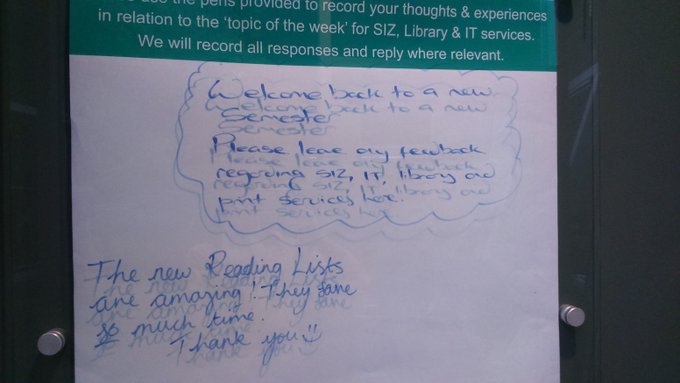 use the pens provided to record your thoughts & experiences
in relation to the ‘topic of the week’ for SIZ, Library & IT services.
We will record all responses and reply where relevant.
Welcome back to a new
Semester
Please leave any feedback
regarding SIZ, IT, library and
print services here.
The new Reading Lists
are amazing! They save
so much time.
Thank you☺